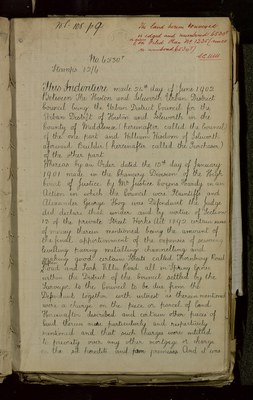 The land herein conveyed
is edged and numbered
No 6538
Stamps
This Indenture made 24th day of June 1902
Between The Heston and Isleworth Urban District
Council being the Urban District Council for the
Urban District of Heston and Isleworth in the
County of Middlesex (hereinafter called the Council)
of the one part and William Hudson of Isleworth
aforesaid Builder (hereinafter called the Purchaser)
of the other part
Whereas by an Order dated the 15th day of January
1901 made in the Chancery Division of the High
Court of Justice by Mr Justice Cozens Hardy in an
Action in which the Council were Plaintiffs and
Alexander George Hog was Defendant the Judge
did declare that under and by virtue of Section
13 of the private Street Works Act 1892 certain sums
of money therein mentioned being the amount of
the final apportionment of the expenses of sewering
levelling paving metalling channelling and
making good certain Streets called Thornbury Road
and Jack Ellis Road all in Spring Grove
within the District of the Council settled by the
Surveyor to the Council to be due from the
Defendant together with interest as therein mentioned
were a charge on the piece or parcel of land
hereinafter described and certain other pieces of
land therein more particularly and respectively
mentioned and that such Charges were entitled
to priority over any other mortgage or charge
on the said heredits and premises And it was